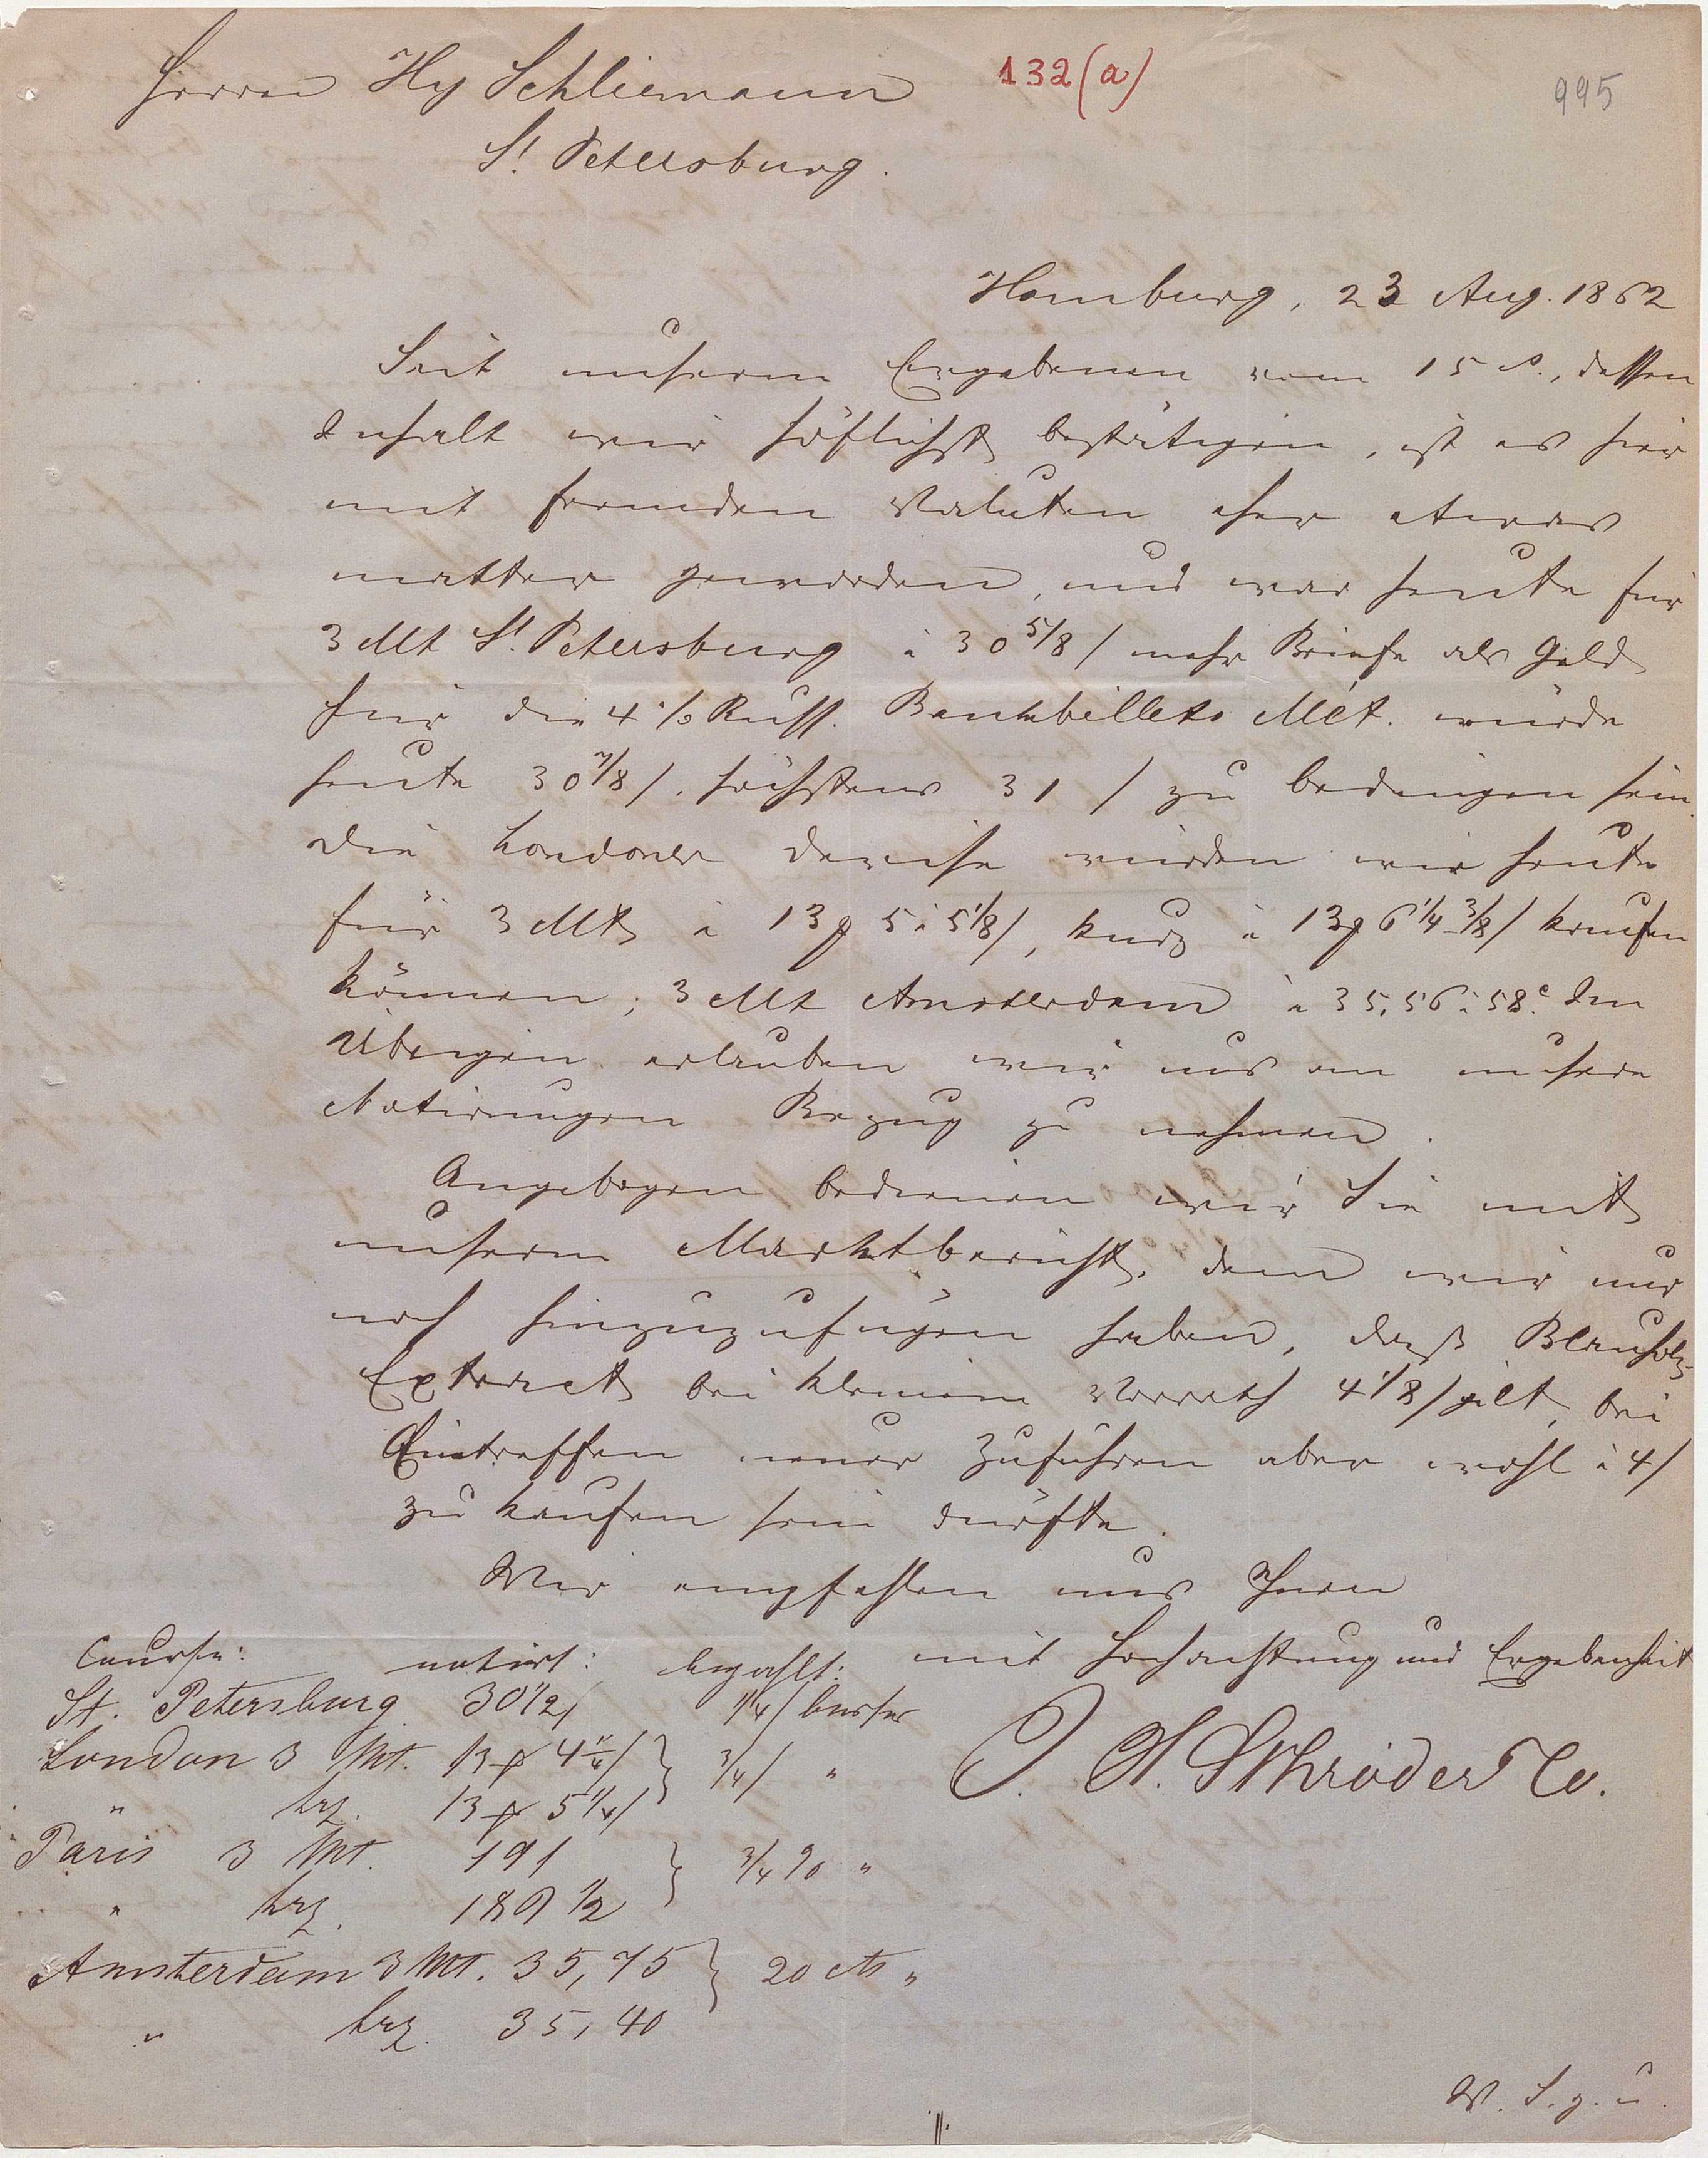 Herrn Hy Schliemann
132(a)
995
St. Petersburg.
Hamburg, 23 Aug. 1862
Seit unserm Ergebenen vom 15 d., dessen
Inhalt wir höflichst bestätigen, ist es hier
mit fremden Valuten eher etwas
matter geworden, und war heute für
3 Mt St. Petersburg à 30 5/8 / mehr Briefe als Geld
für die 4 % Russ. Bankbillets Mét. würde
heute 30 7/8 /, höchstens 31 / zu bedingen sein.
Die Londoner Devise würden wir heute
für 3 Mt à 13 5 à 5 1/8 /, kurz à 13 6 1/4-3/8 / kaufen
können; 3 Mt Amsterdam à 35,56 à 58 c. Im
Übrigen erlauben wir uns an unsere
Notirungen Bezug zu nehmen.
Angebogen bedienen wir Sie mit
unserm Marktbericht, dem wir nur
noch hinzuzufügen haben, daß Blauholz-
Extract bei kleinem Vorrath 4 1/8 / gilt, bei
Eintreffen neuer Zufuhren aber wohl à 4 /
zu kaufen sein dürfte.
Wir empfehlen uns Ihnen
mit Hochachtung und Ergebenheit
J. H. Schröder & Co.
Course: notirt: bezahlt:
St. Petersburg 30 1/2 / 1/4 / besser
London 3 Mt. 13 4 1/4 / } 3/4 / "
" krz. 13 5 1/4 /
Paris 3 Mt. 191 } 3/4 % "
" krz. 189 1/2
Amsterdam 3 Mt. 35,75 } 20 cts "
" krz. 35,40
W. S. g. u.